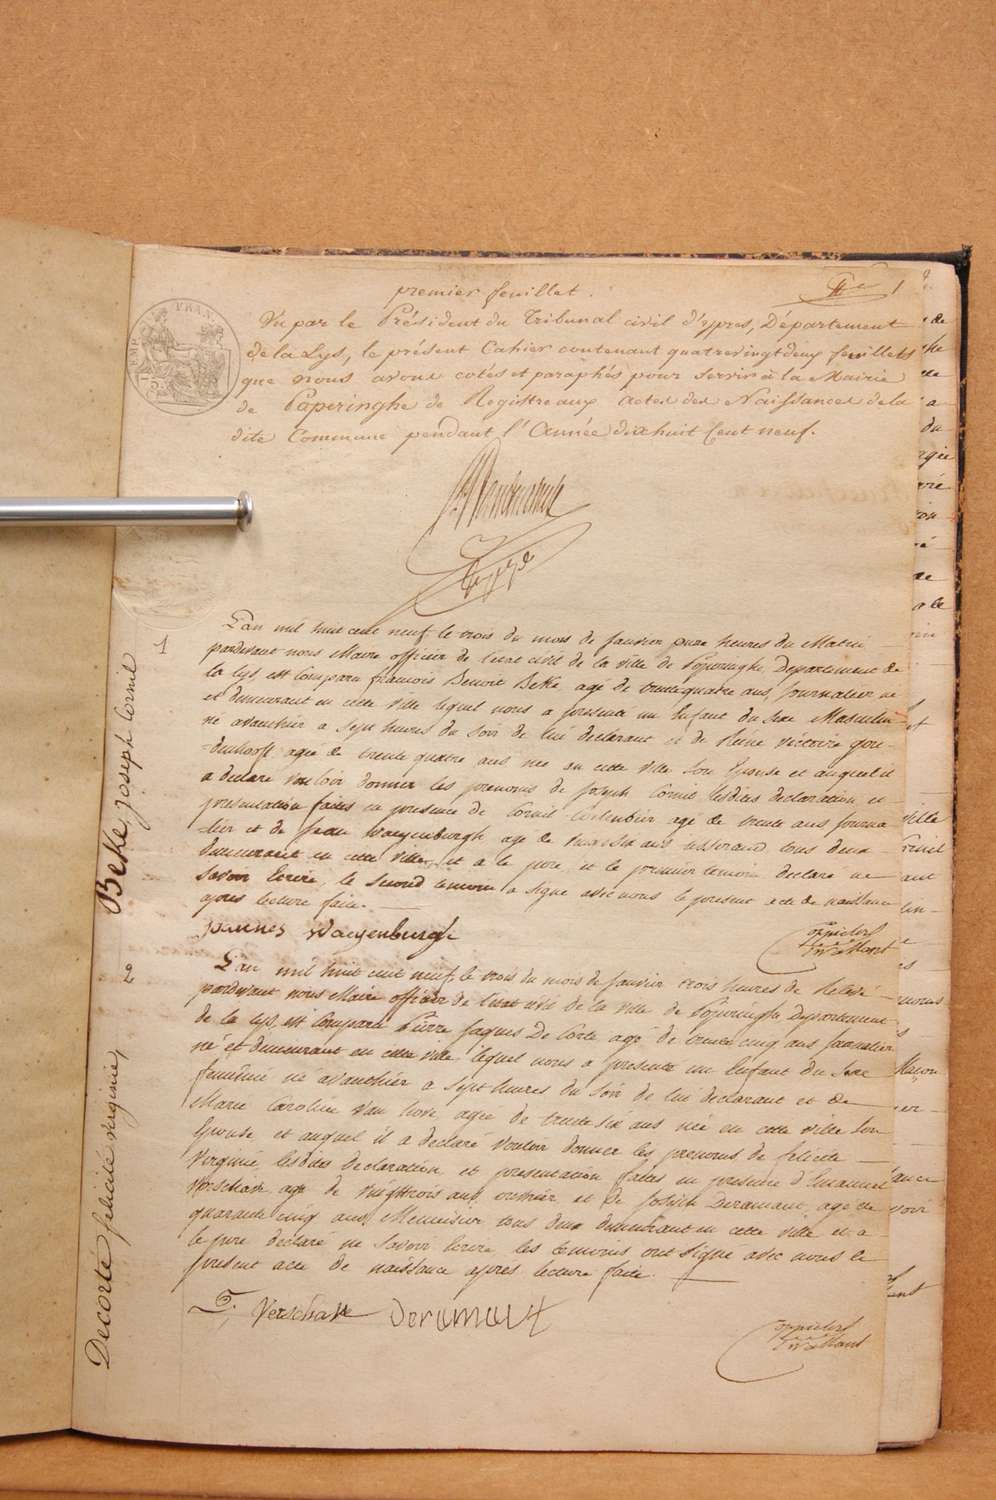 premier feuillet. 1
Vu par le Président du Tribunal civil d'ypres, Département
de la Lys, le présent Cahier contenant quatrevingt deux feuillets
que nous avons cotés et paraphés pour servir à la Mairie
de Paperinghe de Registre aux actes des Naissances de la
dite Commune pendant l'Année dixhuit Cent neuf.
EMP FRAN
1
L'an mil huit cent neuf le trois du mois de Janvier heures du Matin
pardevant nous Maire officier de l'etat civil de la ville de Poperinghe Departement de
la Lys, est Comparu francois Benoit Beke, agé de trentequatre ans, Journalier né
et demeurant en cette ville lequel nous a presenté un Enfant du sexe Masculin
né avanthier a sept heures du soir de lui declarant et de Reine victoire gou-
-denhooft agée de trente quatre ans née en cette ville son Epouse et auquel il
a declaré vouloir donner les prenoms de Joseph Cornil lesdites declaration et
presentation faites en presence de Cornil agé de trente ans Journa
-lier et de Jean Waeyenburgh agé de ans tisserand tous deux
demeurant en cette ville, et a le pere, et le premier temoin declaré ne
savoir Ecrire, le second temoin a signé avec nous le present acte de naissance
apres lecture faite.
joannes Waeyenburgh
Beke, joseph Cornil
2
L'an mil huit cent neuf le trois du mois de Janvier trois heures de Relevé
pardevant nous Maire officier de l'etat civil de la ville de Poperinghe Departement
de la Lys, est Comparu Pierre Jaques De Corte agé de trente cinq ans Journalier
né et demeurant en cette ville lequel nous a presenté un Enfant du sexe
feminin né avanthier a sept heures du soir de lui declarant et de
Marie Caroline Van hove agée de trente six ans née en cette ville son
Epouse, et auquel il a declaré vouloir donner les prenoms de felicité
Virginie, lesdites declaration et presentation faites en presence d'Emanuel
Verschave agé de vingttrois ans ouvrier et de Joseph Deramaut, agé de
quarante cinq ans Menuisier tous deux demeurant en cette ville et a
le pere declaré ne savoir Ecrire les temoins ont signé avec nous le
present acte de naissance apres lecture faite.
Verschave Deramaut
Decorte felicité virginie,